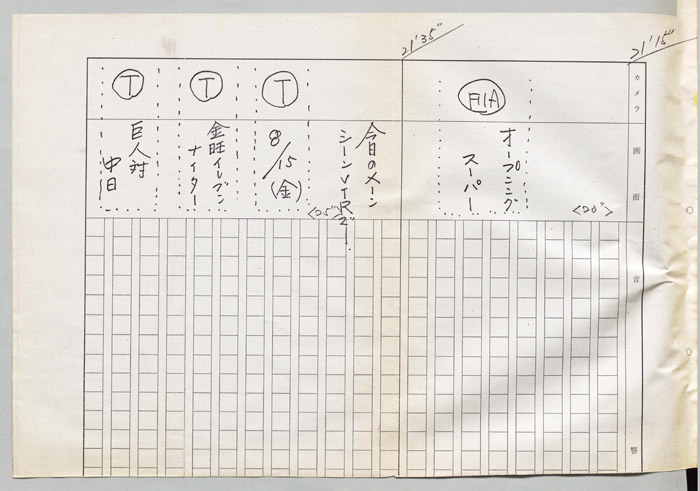 21'15"
カメラ
画面
音
響
F1A
オープニング
スーパー
<20">
21'35"
今日のメーン
シーンVTRで
<25">
T
8/15
(金)
T
金旺イレブン
ナイター
T
巨人対
中日